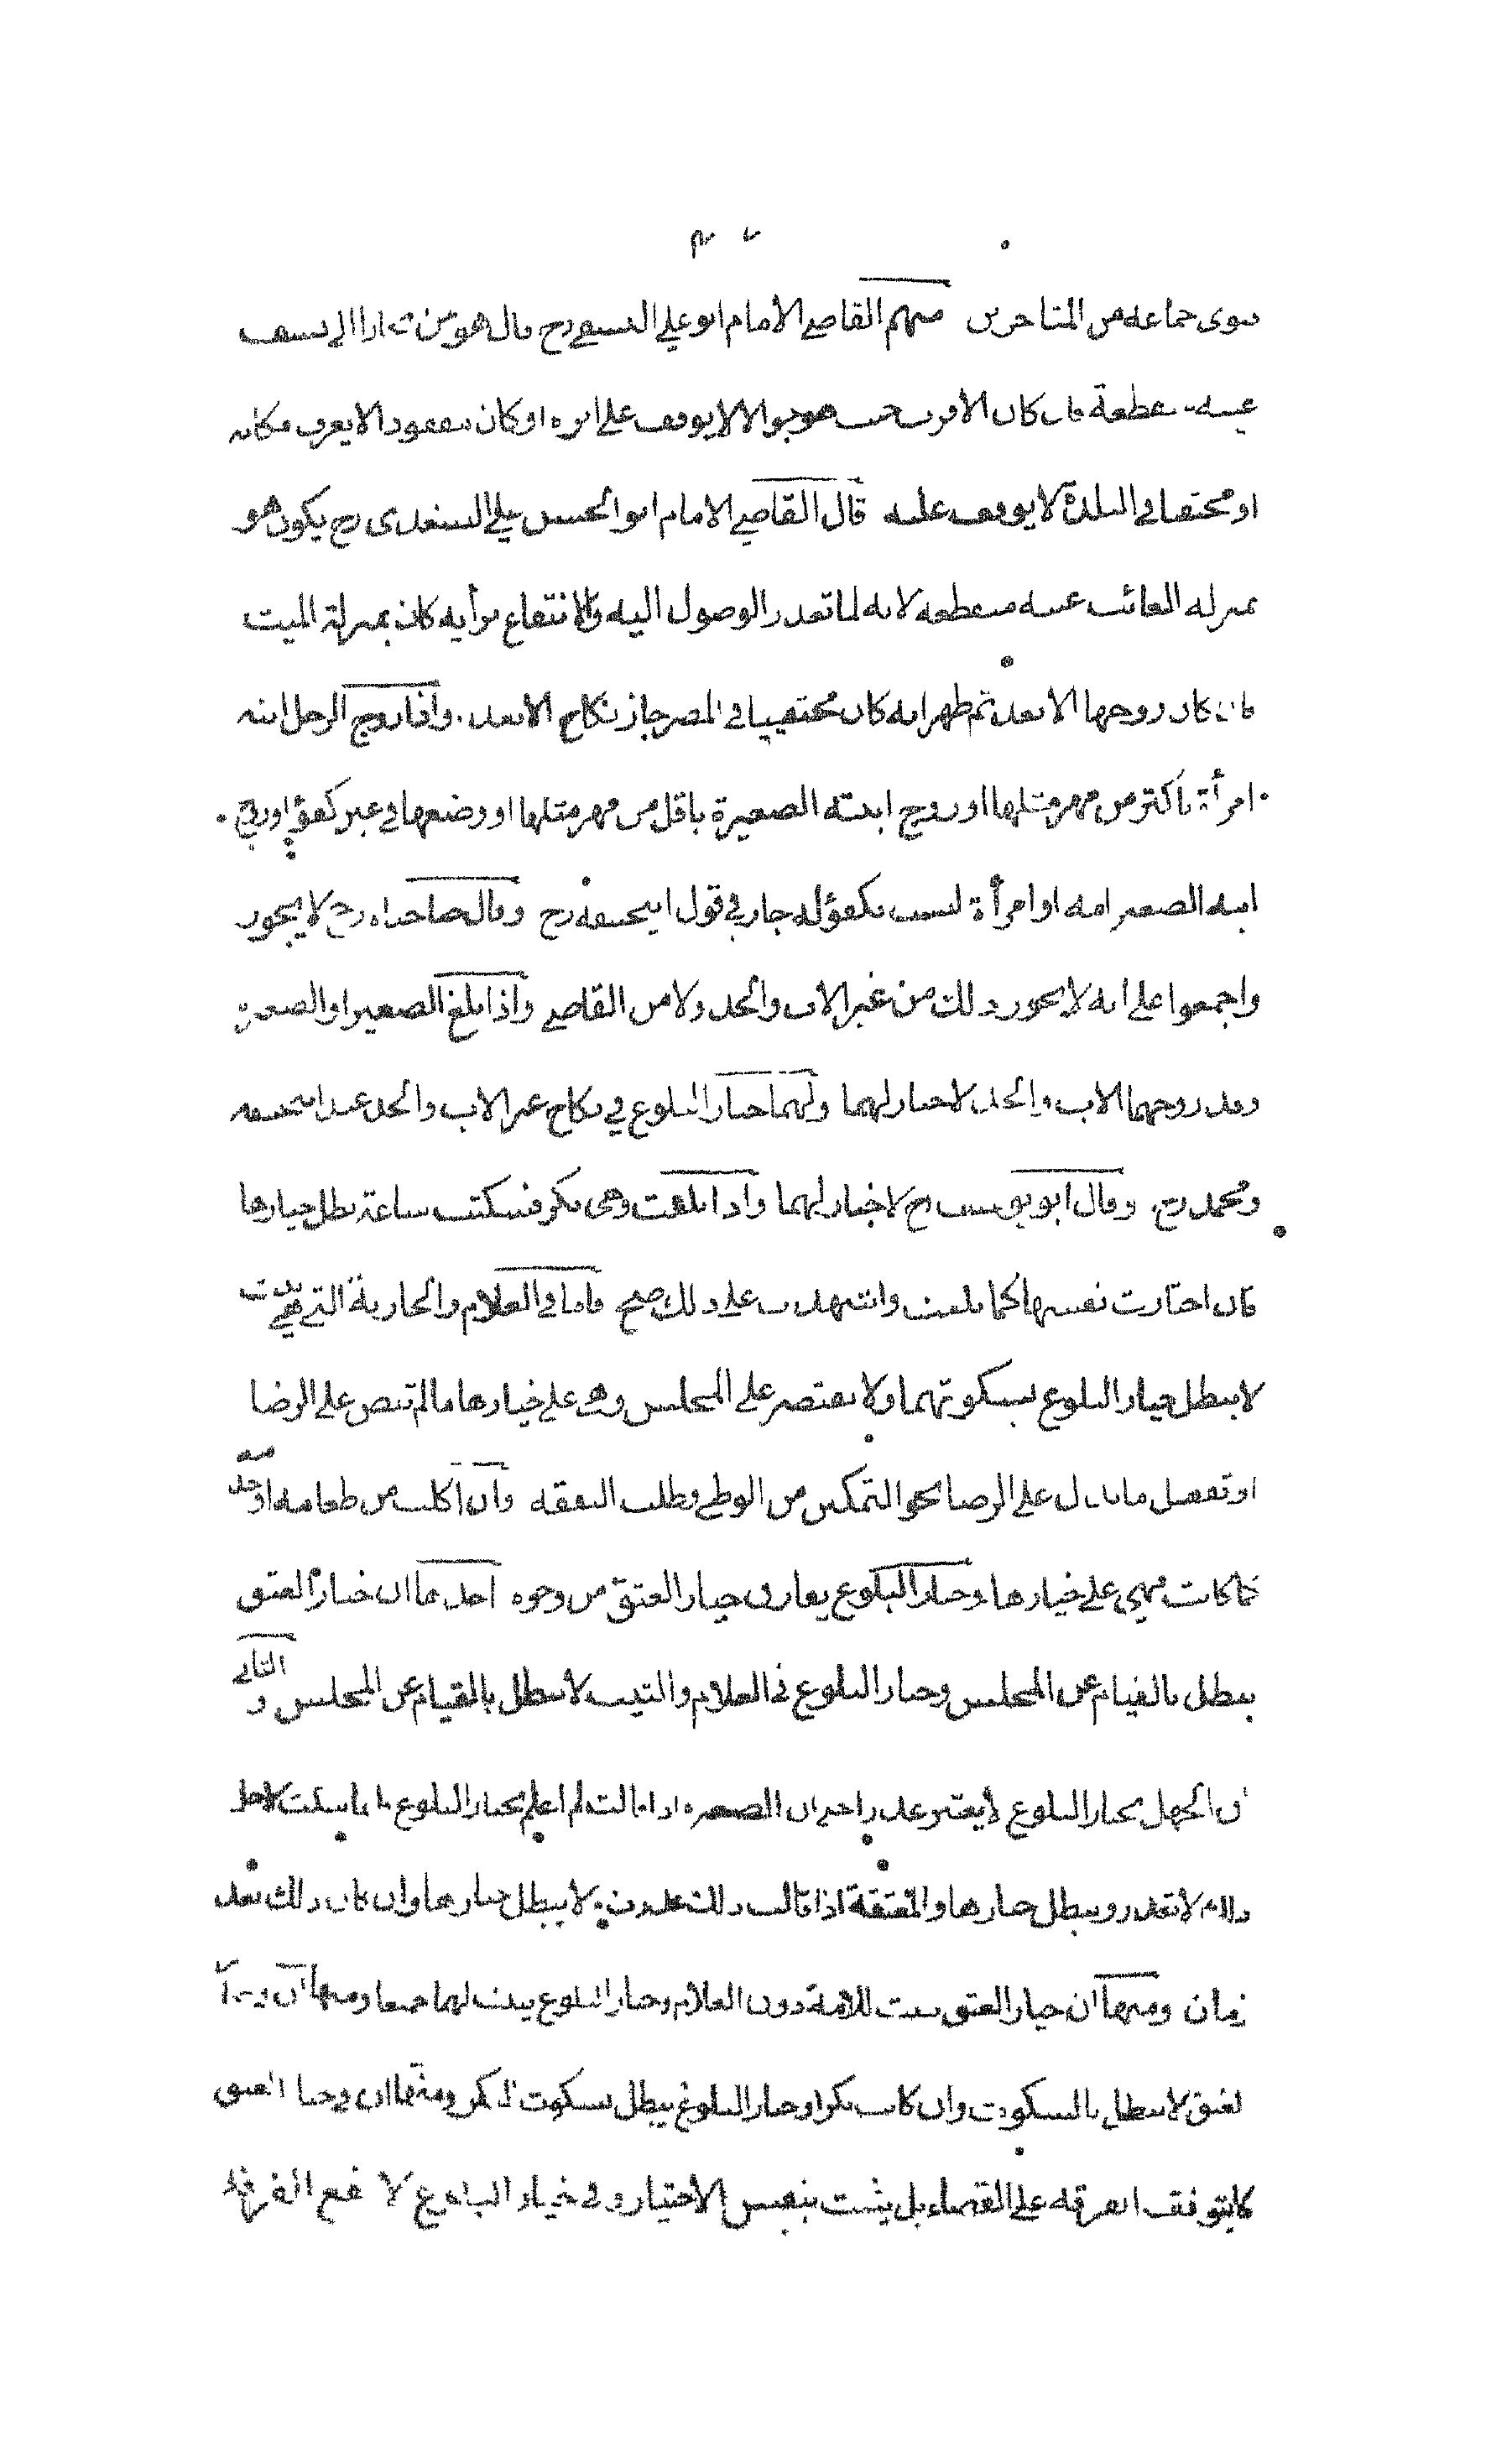 فتوى جماعة من المتأخرين منهم القاضي الامام ابو علي النسفي رح قال هو من بخارا الى نسف
غيبة منقطعة فان كان الاقرب جوالا لا يوقف على اثره او كان مفقودا لا يعرف مكانه
او مختفيا في البلدة لا يوقف عليه قال القاضي الامام ابو الحسن علي السغدي رح يكون هو
بمنزلة الغائب غيبة منقطعة لانه لما تعذر الوصول اليه والانتفاع برأيه كان بمنزلة الميت
فان كان زوجها الابعد ثم ظهر انه كان مختفيا في المصر جاز نكاح الابعد واذا زوج الرجل ابنه
امرأة باكثر من مهر مثلها او زوج ابنته الصغيرة باقل من مهر مثلها او وضعها في غير كفؤ او زوج
ابنه الصغير امة او امرأة ليست بكفؤ له جاز في قول ابيحنيفة رح وقال صاحباه رح لا يجوز
واجمعوا على انه لا يجوز ذلك من غير الاب والجد ولا من القاضي واذا بلغ الصغير او الصغيرة
وقد زوجهما الاب والجد لا خيار لهما ولهما خيار البلوغ في نكاح غير الاب والجد عند ابيحنيفة
ومحمد رح وقال ابو يوسف رح لا خيار لهما واذا بلغت وهي بكر فسكتت ساعة بطل خيارها
فان اختارت نفسها كما بلغت واشهدت على ذلك صح فاما في الغلام والجارية التي هي ثيب
لا يبطل خيار البلوغ بسكوتهما ولا يقتصر على المجلس وهي على خيارها ما لم تنص على الرضا
او تفعل ما يدل على الرضا نحو التمكين من الوطي وطلب النفقة وان اكلت من طعامه او خدمته
كما كانت فهي على خيارها وخيار البلوغ يفارق خيار العتق من وجوه احدها ان خيار العتق
يبطل بالقيام عن المجلس وخيار البلوغ في الغلام والثيب لا يبطل بالقيام عن المجلس و الثاني
ان الجهل بخيار البلوغ لا يعتبر عذرا حتى ان الصغيرة اذا قالت لم اعلم بخيار البلوغ فلما سكت لاجل
ذلك لا تعذر ويبطل خيارها والمعتقة اذا قالت ذلك عذرت لا يبطل خيارها وان كان ذلك بعد
زمان ومنها ان خيار العتق يثبت للامة دون الغلام وخيار البلوغ يثبت لهما جميعا ومنها ان
العتق لا يبطل بالسكوت وان كانت بكرا وخيار البلوغ يبطل بسكوت البكر ومنها ان في خيار العتق
لا يتوقف الفرقة على القضاء بل يثبت بنفس الاختيار وفي خيار البلوغ لا تقع الفرقة